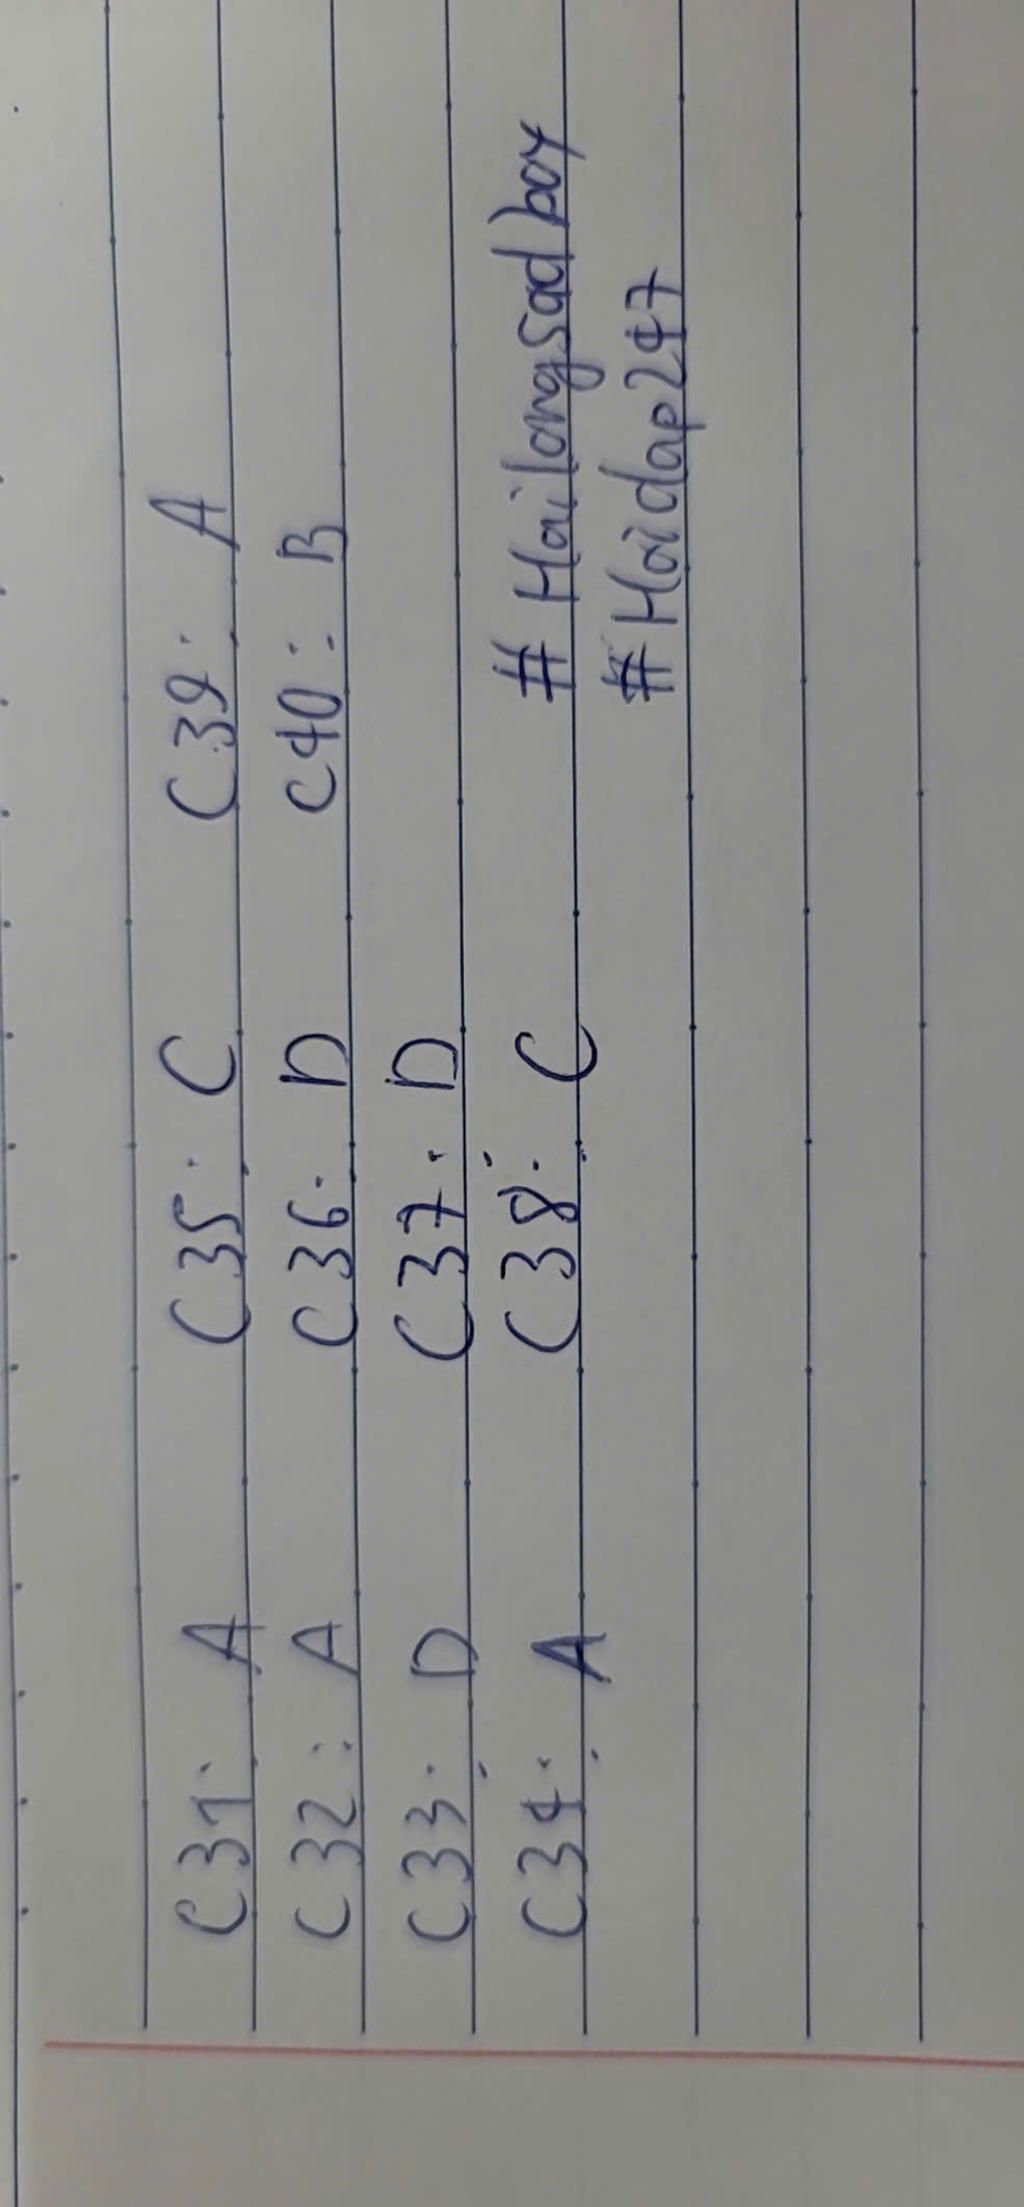 C31: A C35: C C39: A
C32: A C36: D C40: B
C33: D C37: D
C34: A C38: C # Hailongsadboy
# Hoidap247